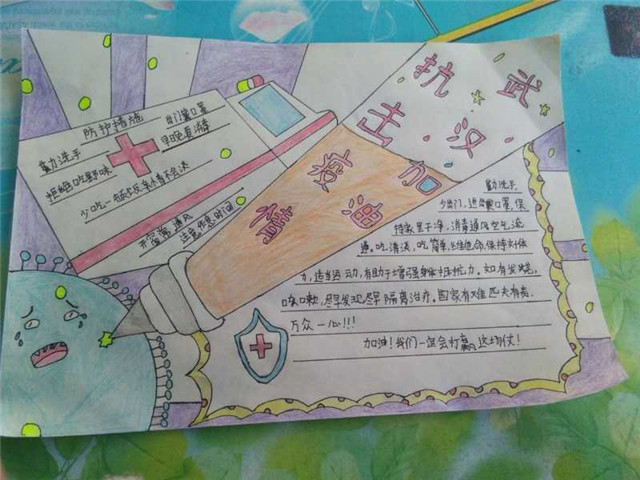 抗击疫情
武汉加油
防护措施
出门戴口罩
勤洗手
早晚要消毒
拒绝吃野味
少吃一顿饭,亲情不会淡
开窗常通风
注意休息时间
勤洗手
少出门,进出戴口罩,保
持家里干净,消毒通风空气流
通。吃清淡,吃简单,维他命,保持好体
力,适当运动,有助于增强身体抵抗力。如有发烧,
咳嗽,尽早发现尽早隔离治疗。国家有难匹夫有责,
万众一心!!!
加油!我们一定会打赢这场仗!